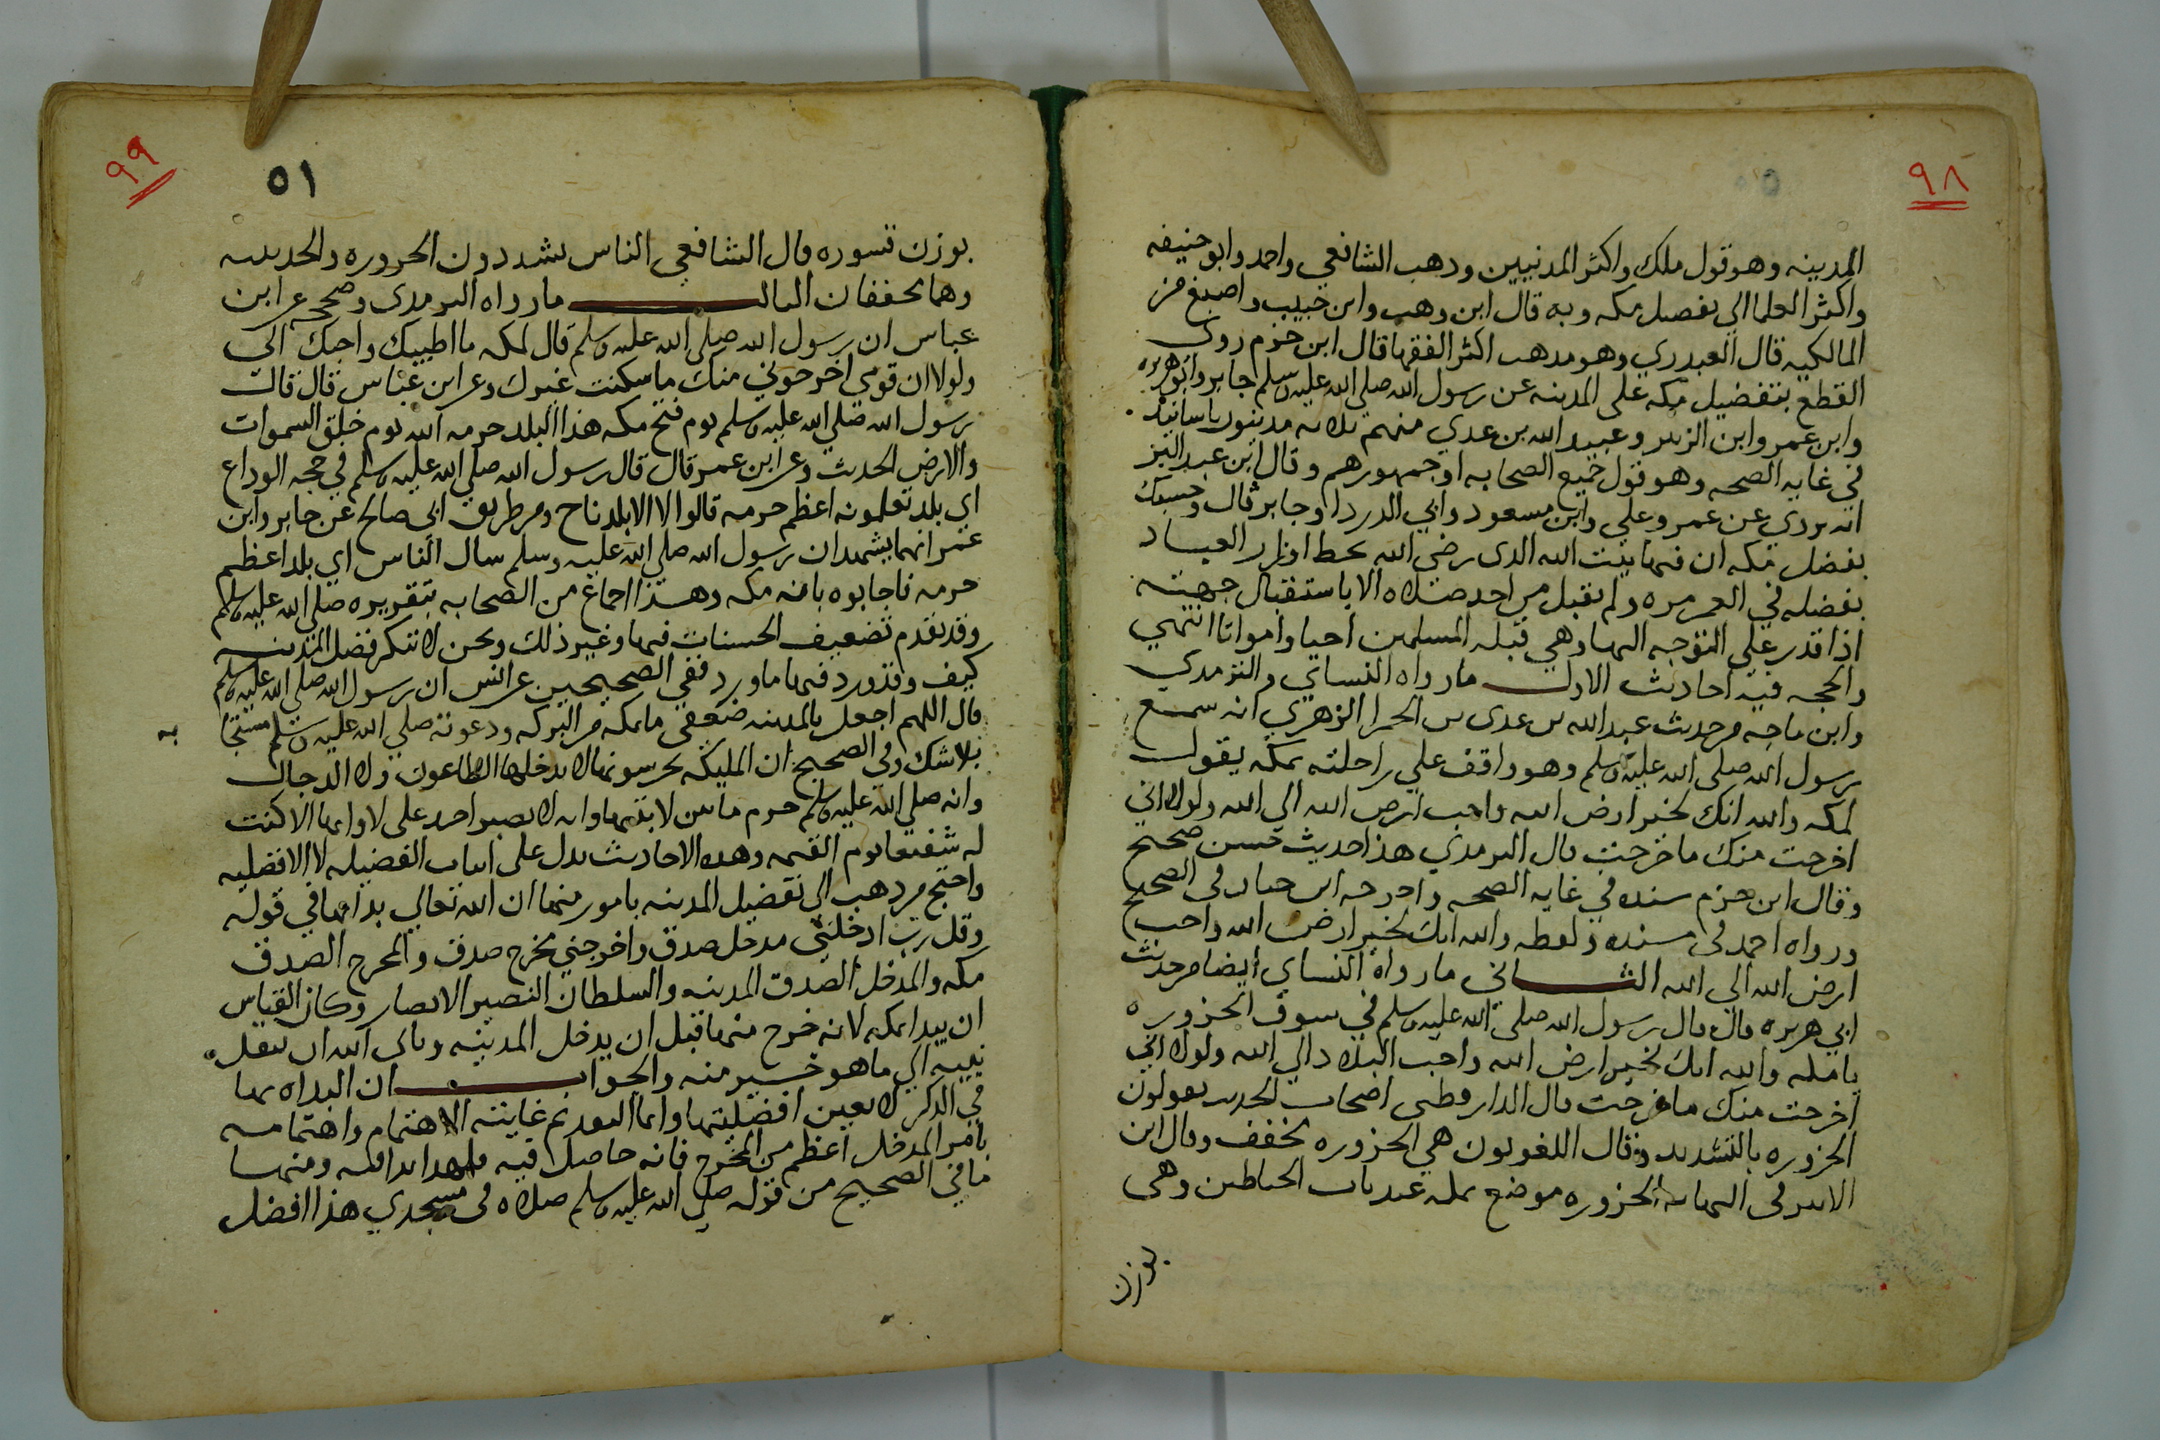 ٩٨
المدينه وهو قول ملك واكثر المدنيين وذهب الشافعي واحمد وابو حنيفه
واكثر العلما الي تفضيل مكه وبه قال ابن وهب وابن حبيب واصبغ من
المالكيه قال العبدري وهو مذهب اكثر الفقها قال ابن حزم روى
القطع بتفضيل مكه على المدينه عن رسول الله صلى الله عليه وسلم جابر وابو هريره
وابن عمر وابن الزبير وعبيد الله بن عدي منهم ثلاثه مدنيون باسانيد
في غايه الصحه وهو قول جميع الصحابه او جمهورهم وقال ابن عبد البر
انه يروي عن عمر وعلي وابن مسعود وابي الدردا وجابر قال وحسبك
بفضل مكه ان فيها بيت الله الذى رضى الله بحط اوزار العباد
بفضله في العمر مره ولم يقبل من احد صلاه الا باستقبال جهته
اذا قدر علي التوجه اليها وهي قبله المسلمين احيا وامواتا انتهي
والحجه فيه احاديث الاول ما رواه النساي والترمدي
وابن ماجه من حديث عبد الله بن عدى بن الحمرا الزهري انه سمع
رسول الله صلى الله عليه وسلم وهو واقف علي راحلته بمكه يقول
لمكه والله انك لخير ارض الله واحب ارض الله الي الله ولولا اني
اخرجت منك ما خرجت قال الترمذي هذا حديث حسن صحيح
وقال ابن حزم سنده في غايه الصحه واخرجه ابن حبان في الصحيح
ورواه احمد في مسنده ولفظه والله انك لخير ارض الله واحب
ارض الله الي الله الثاني ما رواه النساي ايضا من حديث
ابي هريره قال قال رسول الله صلى الله عليه وسلم في سوق الحزوره
يا مكه والله انك لخير ارض الله واحب البلاد الي الله ولولا اني
اخرجت منك ما خرجت قال الدارقطني اصحاب الحديث يقولون
الحزوره بالتشديد وقال اللغويون هي الحزوره بخفف وقال ابن
الاثير في النهايه الحزوره موضع بمكه عند باب الحناطين وهي
بوزن
٩٩
٥١
بوزن قسوره قال الشافعي الناس يشددون الحزوره والحديبيه
وهما مخففان الثالث ما رواه الترمدي وصححه عن ابن
عباس ان رسول الله صلى الله عليه وسلم قال لمكه ما اطيبك واحبك الي
ولولا ان قومي اخرجوني منك ما سكنت غيرك وعن ابن عباس قال قال
رسول الله صلي الله عليه وسلم يوم فتح مكه هذا البلد حرمه الله يوم خلق السموات
والارض الحديث وعن ابن عمر قال قال رسول الله صلي الله عليه وسلم في حجه الوداع
اي بلد تعلمونه اعظم حرمه قالوا لا الا بلدنا ح ومن طريق ابي صالح عن جابر وابن
عمر انهما يشهدان رسول الله صلي الله عليه وسلم سال الناس اي بلد اعظم
حرمه فاجابوه بانه مكه وهذا اجماع من الصحابه بتقريره صلي الله عليه وسلم
وقد تقدم تضعيف الحسنات فيها وغير ذلك ونحن لا ننكر فضل المدينه
كيف وقد ورد فيها ما ورد ففي الصحيحين عن انس ان رسول الله صلي الله عليه وسلم
قال اللهم اجعل بالمدينه ضعفي ما بمكه من البركه ودعوته صلي الله عليه وسلم مستجا
به
بلا شك وفي الصحيح ان المليكه يحرسونها لا يدخلها الطاعون ولا الدجال
وانه صلي الله عليه وسلم حرم ما بين لابتيها وانه لا يصبر احد على لاوايها الا كنت
له شفيعا يوم القيمه وهذه الاحاديث تدل على اثبات الفضيله لا الافضليه
واحتج من ذهب الي تفضيل المدينه بامور منها ان الله تعالي بدا بها في قوله
وقل رب ادخلني مدخل صدق واخرجني مخرج صدق والمخرج الصدق
مكه والمدخل الصدق المدينه والسلطان النصير الانصار وكان القياس
ان يبدا بمكه لانه خرج منها قبل ان يدخل المدينه وياى الله ان ينقل
نبيه الي ما هو خير منه والجواب ان البداه بها
في الذكر لا يعين افضليتها وانما التقديم غايته الاهتمام واهتمامه
بامر المدخل اعظم من المخرج فانه حاصل فيه فلهذا بدا به ومنها
ما في الصحيح من قوله صلي الله عليه وسلم صلاه في مسجدي هذا افضل